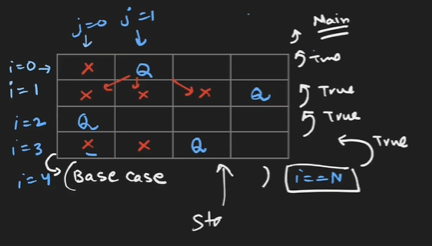 j=0 j=1 Main
i=0 → X Q True
i=1 X X X Q True
i=2 Q True
i=3 X X Q True
i=4 (Base case ) i==N
Sto